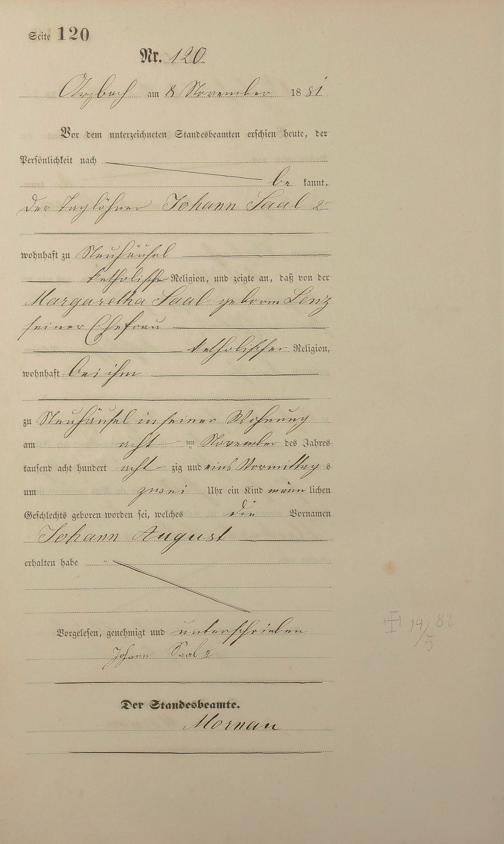 Seite 120
Nr. 120
Arzbach am 8 November 1881
Vor dem unterzeichneten Standesbeamten erschien heute, der
Persönlichkeit nach
be kannt,
der Taglöhner Johann Saal 2
wohnhaft zu Neuhäusel
katholischer Religion, und zeigte an, daß von der
Margaretha Saal geborn Lenz
seiner Ehefrau
katholischer Religion,
wohnhaft bei ihm
zu Neuhäusel in seiner Wohnung
am acht ten November des Jahres
tausend acht hundert acht zig und eins Vormittag s
um zwei Uhr ein Kind männ lichen
Geschlechts geboren worden sei, welches die Vornamen
Johann August
erhalten habe
Vorgelesen, genehmigt und unterschrieben
Johann Saal 2
Der Standesbeamte.
Mornau
14/5 82